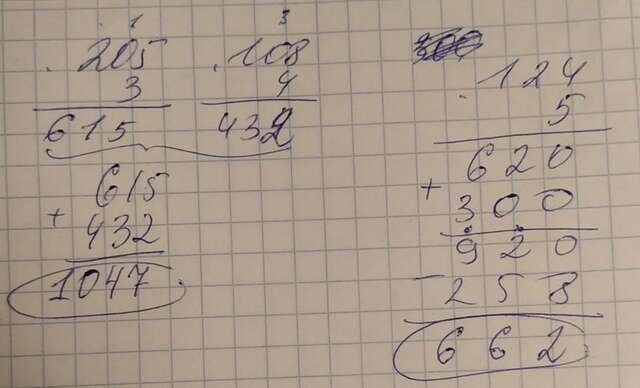 1
. 205
3
615
3
. 108
4
432
615
+ 432
1047
. 124
5
620
+ 300
920
- 258
662